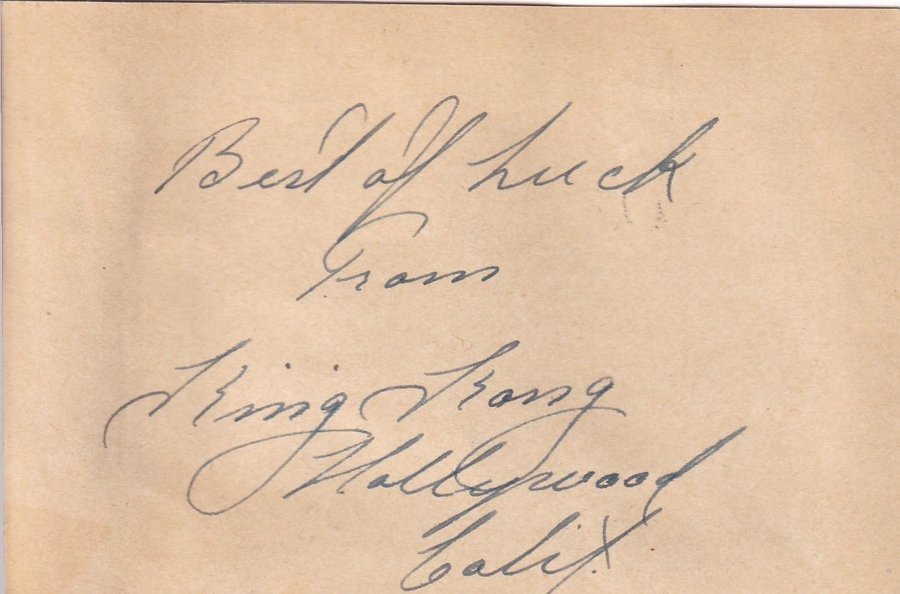 Best of Luck
From
King Kong
Hollywood
Calif.